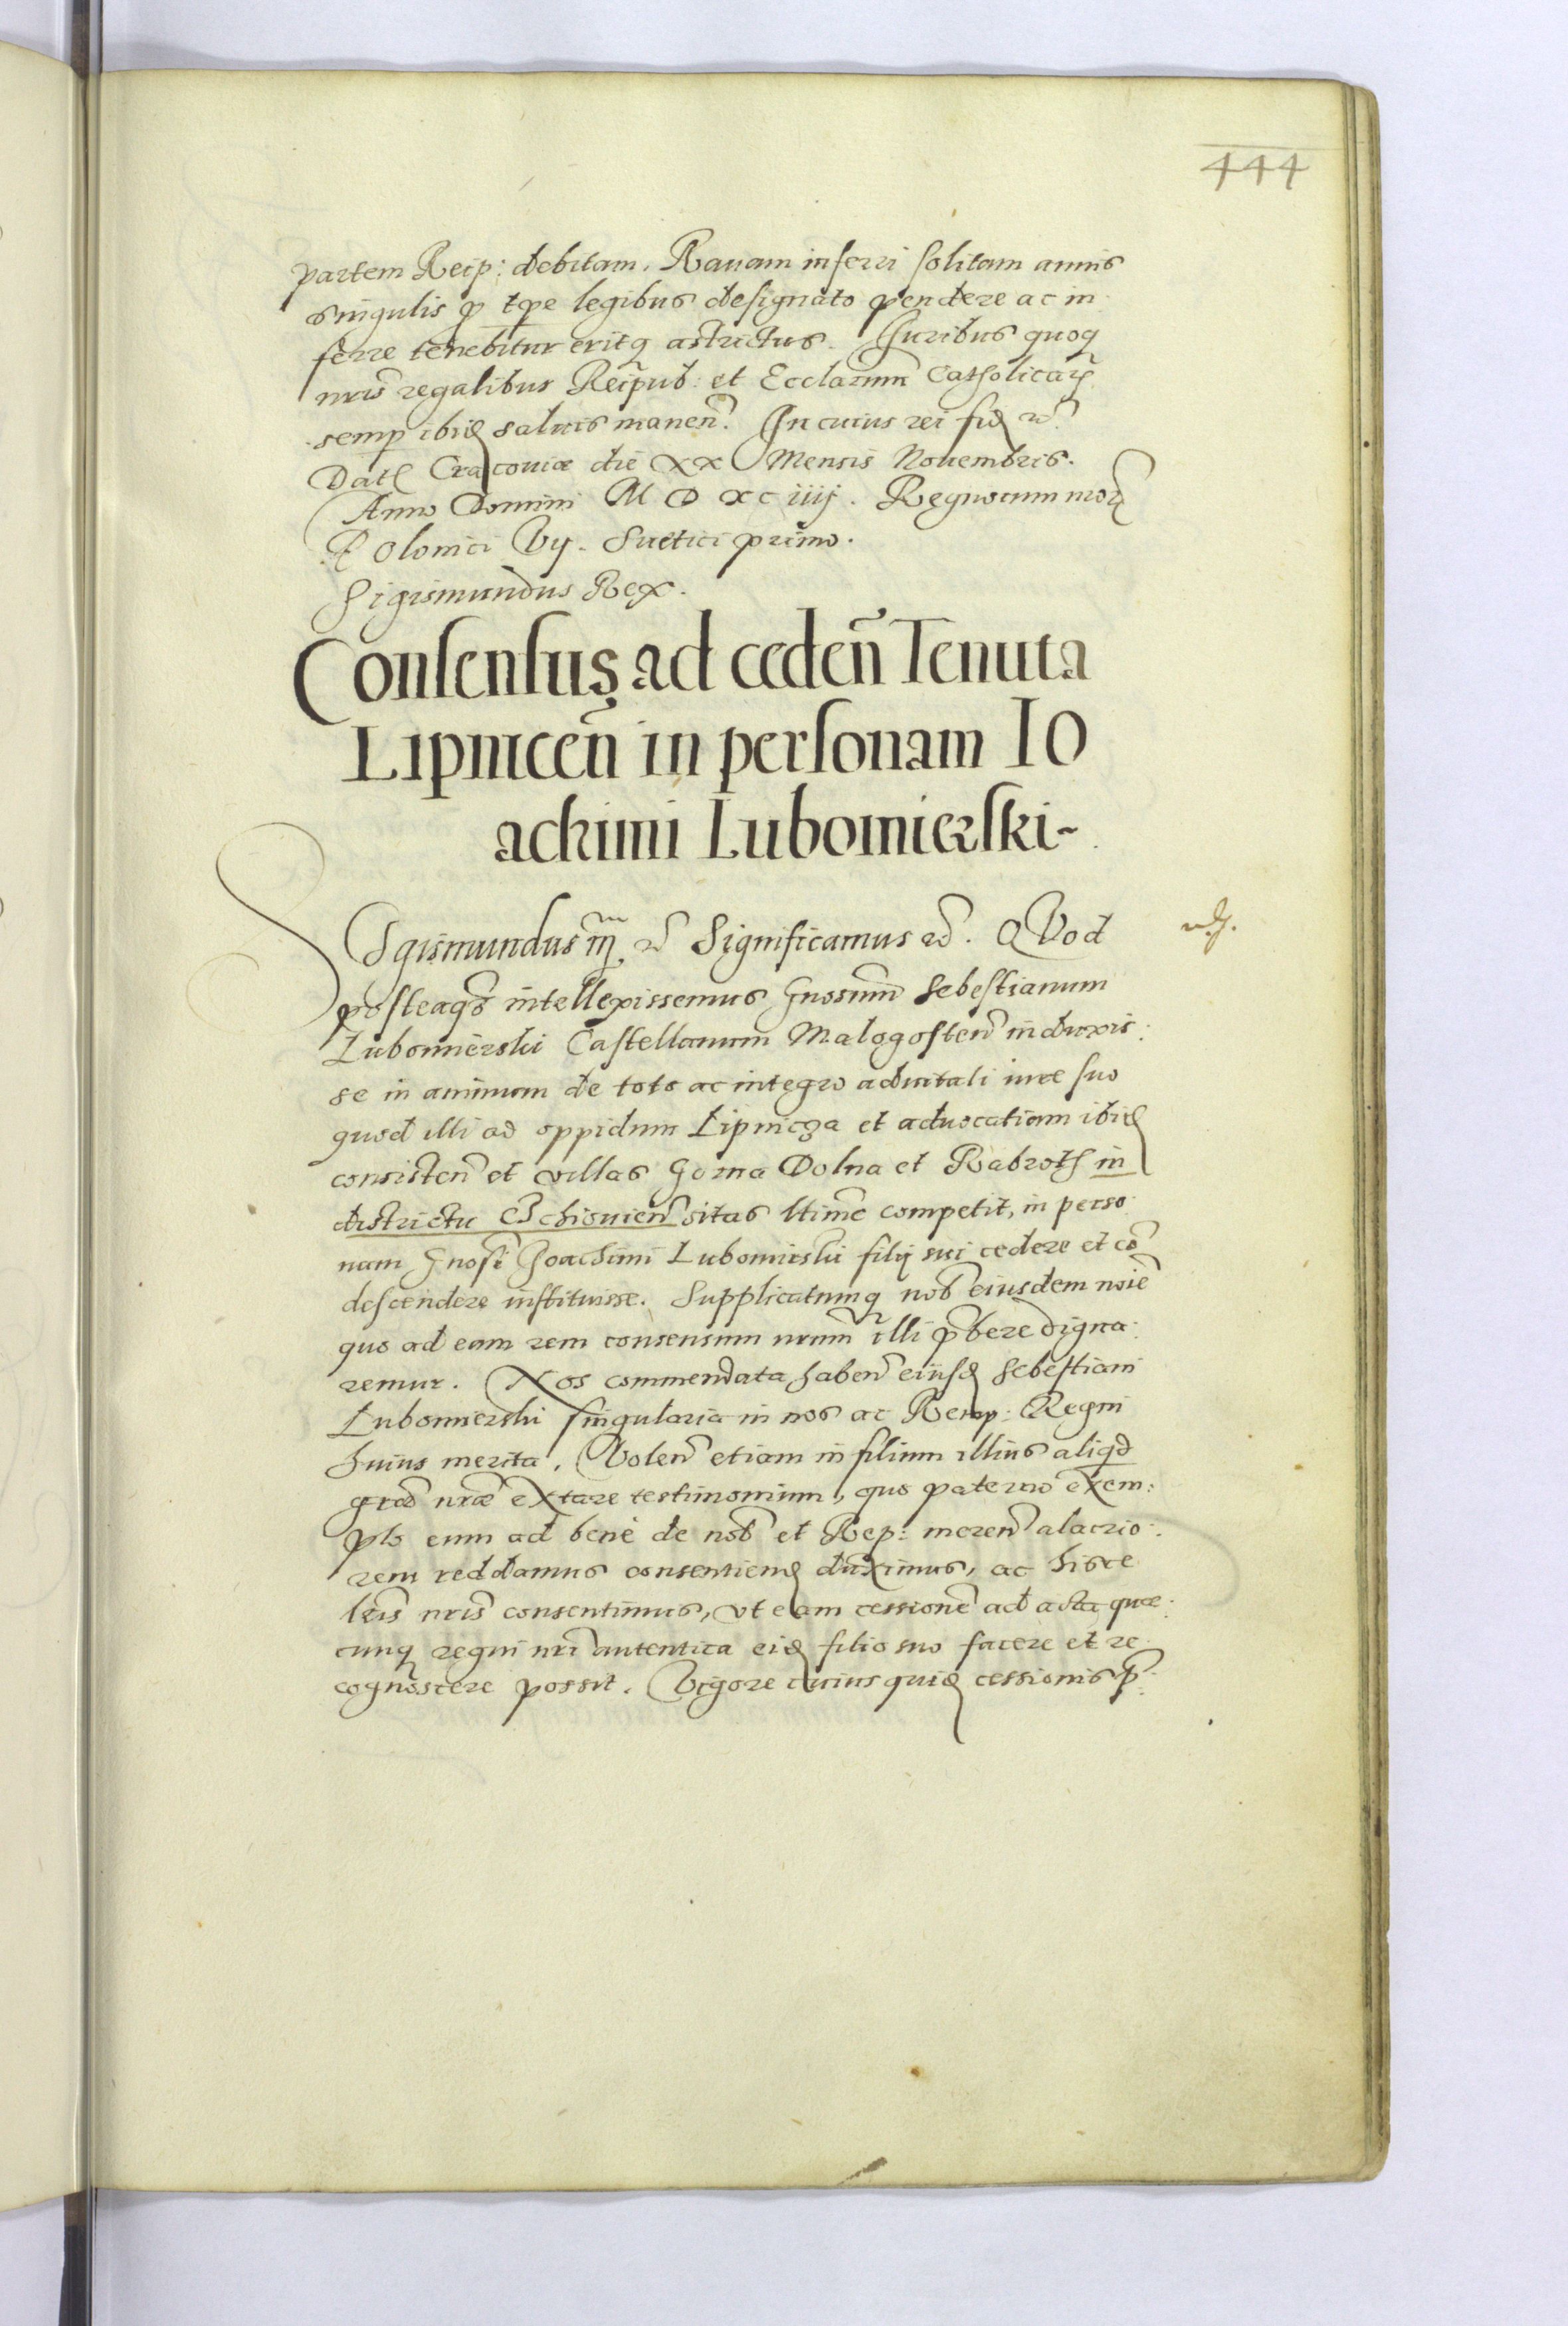 444
partem Reip: debitam. Rauam inferri solitam annis
singulis p tpe legibus designato pendere ac in
ferre tenebitur eritq astrictus. Juribus quoq
nris regalibus Reipub: et Ecclarum Catholicar
semp ibid saluis manen. In cuius rei fid &c.
Dat Cracoviæ die XX Mensis Nouembris.
Anno Domini M D XC iiij. Regnorum nror
Polonici Vij. Suetici primo.
Sigismundus Rex.
Consensus ad ceden Tenuta
Lipnicen in personam IO
achimi Lubomierski-
Sigismundus III &c Significamus &c. QVod
posteaq intellexissemus Gnosum Sebestianum
Lubomierski Castellanum Malogosten induxis:
se in animum de toto ac integro aduitali iure suo
quod illi ad oppidum Lipnicza et aduocatiam ibid
consisten et villas Gorna Dolna et Rabroth in
districtu Czchouien sitas ltime competit, in perso:
nam Gnosi Joachimi Lubomirski filij sui cedere et co
descendere instituisse. Supplicatumq nob eiusdem noie
quo ad eam rem consensum nrum illi pbere digna:
remur. Nos commendata haben eiusd Sebestiani
Lubomierski singularia in nos ac Remp: Regni
huius merita. Volen etiam in filium illius aliqd
græ nræ extare testimonium, quo paterno exem:
plo eum ad bene de nob et Rep: meren alacrio:
rem reddamus consentiend duximus, ac hisce
lris nris consentimus, vt eam cessione ad acta quæ:
cunq regni nri autentica eid filio suo facere et re
cognoscere possit. Vigore cuius quid cessionis p